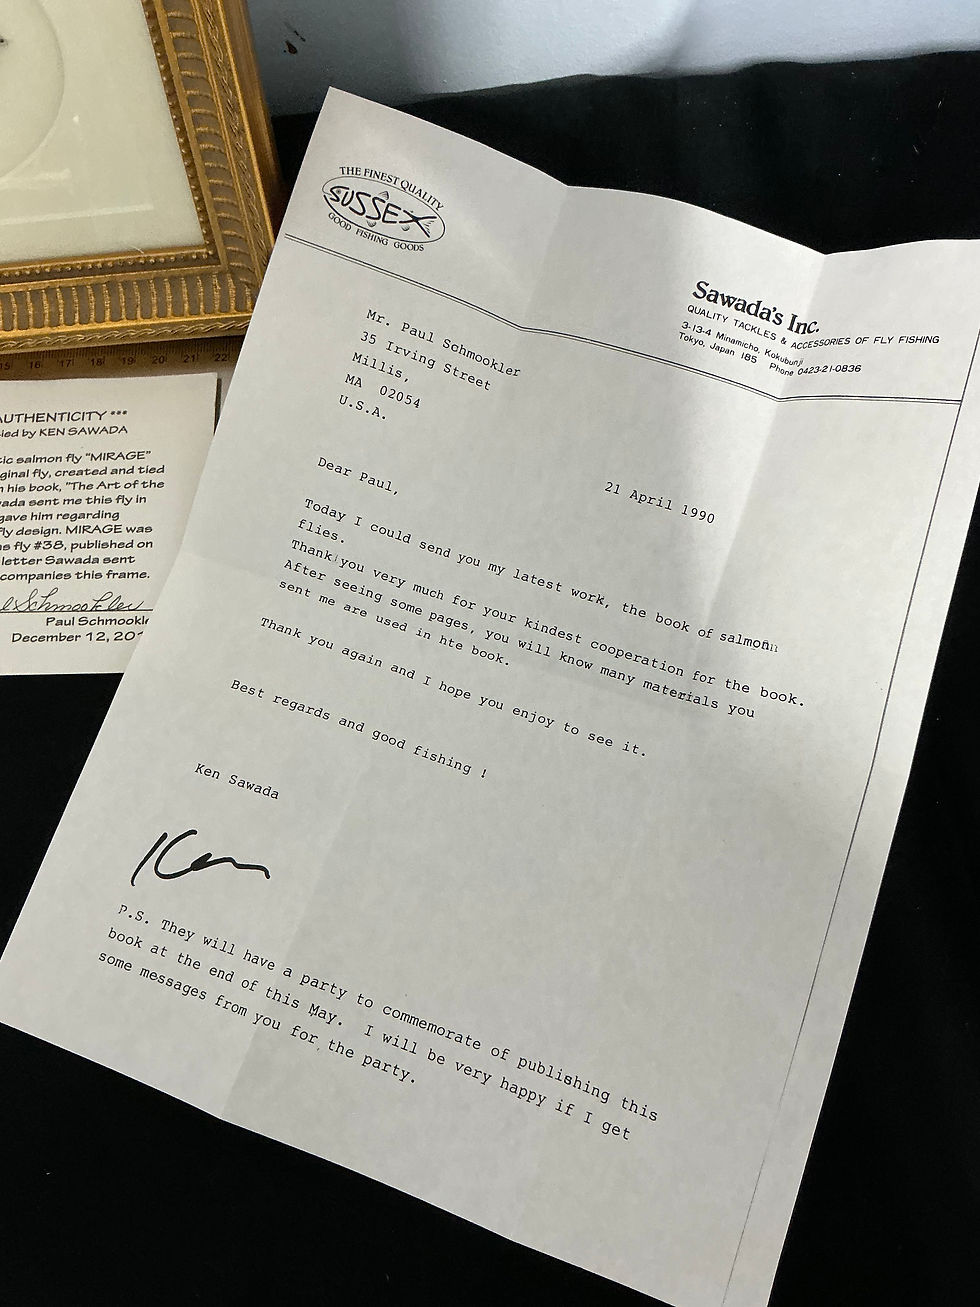 THE FINEST QUALITY
SUSSEX
GOOD FISHING GOODS
Sawada's Inc.
QUALITY TACKLES & ACCESSORIES OF FLY FISHING
3-13-4 Minamicho, Kokubunji
Tokyo, Japan 185 Phone 0423-21-0836
Mr. Paul Schmookler
35 Irving Street
Millis,
MA 02054
U.S.A.
21 April 1990
Dear Paul,
Today I could send you my latest work, the book of salmon
flies.
Thank you very much for your kindest cooperation for the book.
After seeing some pages, you will know many materials you
sent me are used in hte book.
Thank you again and I hope you enjoy to see it.
Best regards and good fishing !
Ken Sawada
Ken
P.S. They will have a party to commemorate of publishing this
book at the end of this May. I will be very happy if I get
some messages from you for the party.
15 16 17 18 19 20 21 22
AUTHENTICITY ***
ied by KEN SAWADA
tic salmon fly "MIRAGE"
ginal fly, created and tied
his book, "The Art of the
ada sent me this fly in
gave him regarding
fly design. MIRAGE was
s fly #38, published on
letter Sawada sent
companies this frame.
Schmookler
Paul Schmookle
December 12, 201